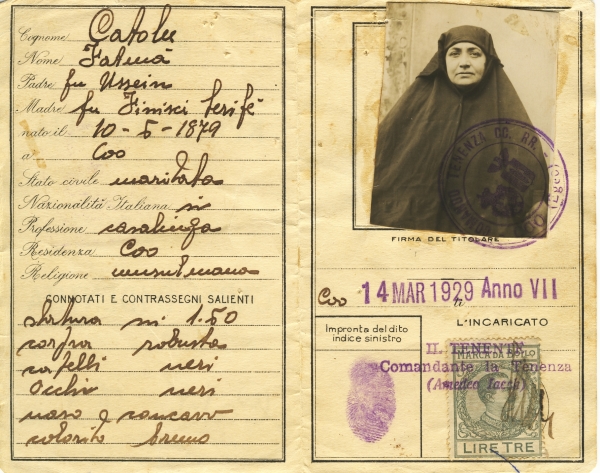 Cognome Catolu
Nome Fatmá
Padre fu Ussein
Madre fu Finisci Serifé
nato il 10-5-1879
a Coo
Stato civile maritata
Nazionalità Italiana si
Professione casalinga
Residenza Coo
Religione musulmana
CONNOTATI E CONTRASSEGNI SALIENTI
statura m 1.50
corpo robusto
capelli neri
occhi neri
naso concavo
colorito bruno
TENENZA CC. RR.
FIRMA DEL TITOLARE
Coo 14 MAR 1929 Anno VII
Impronta del dito
indice sinistro
L'INCARICATO
IL TENENTE
Comandante la Tenenza
(Amedeo Iacchi)
MARCA DA BOLLO
LIRE TRE